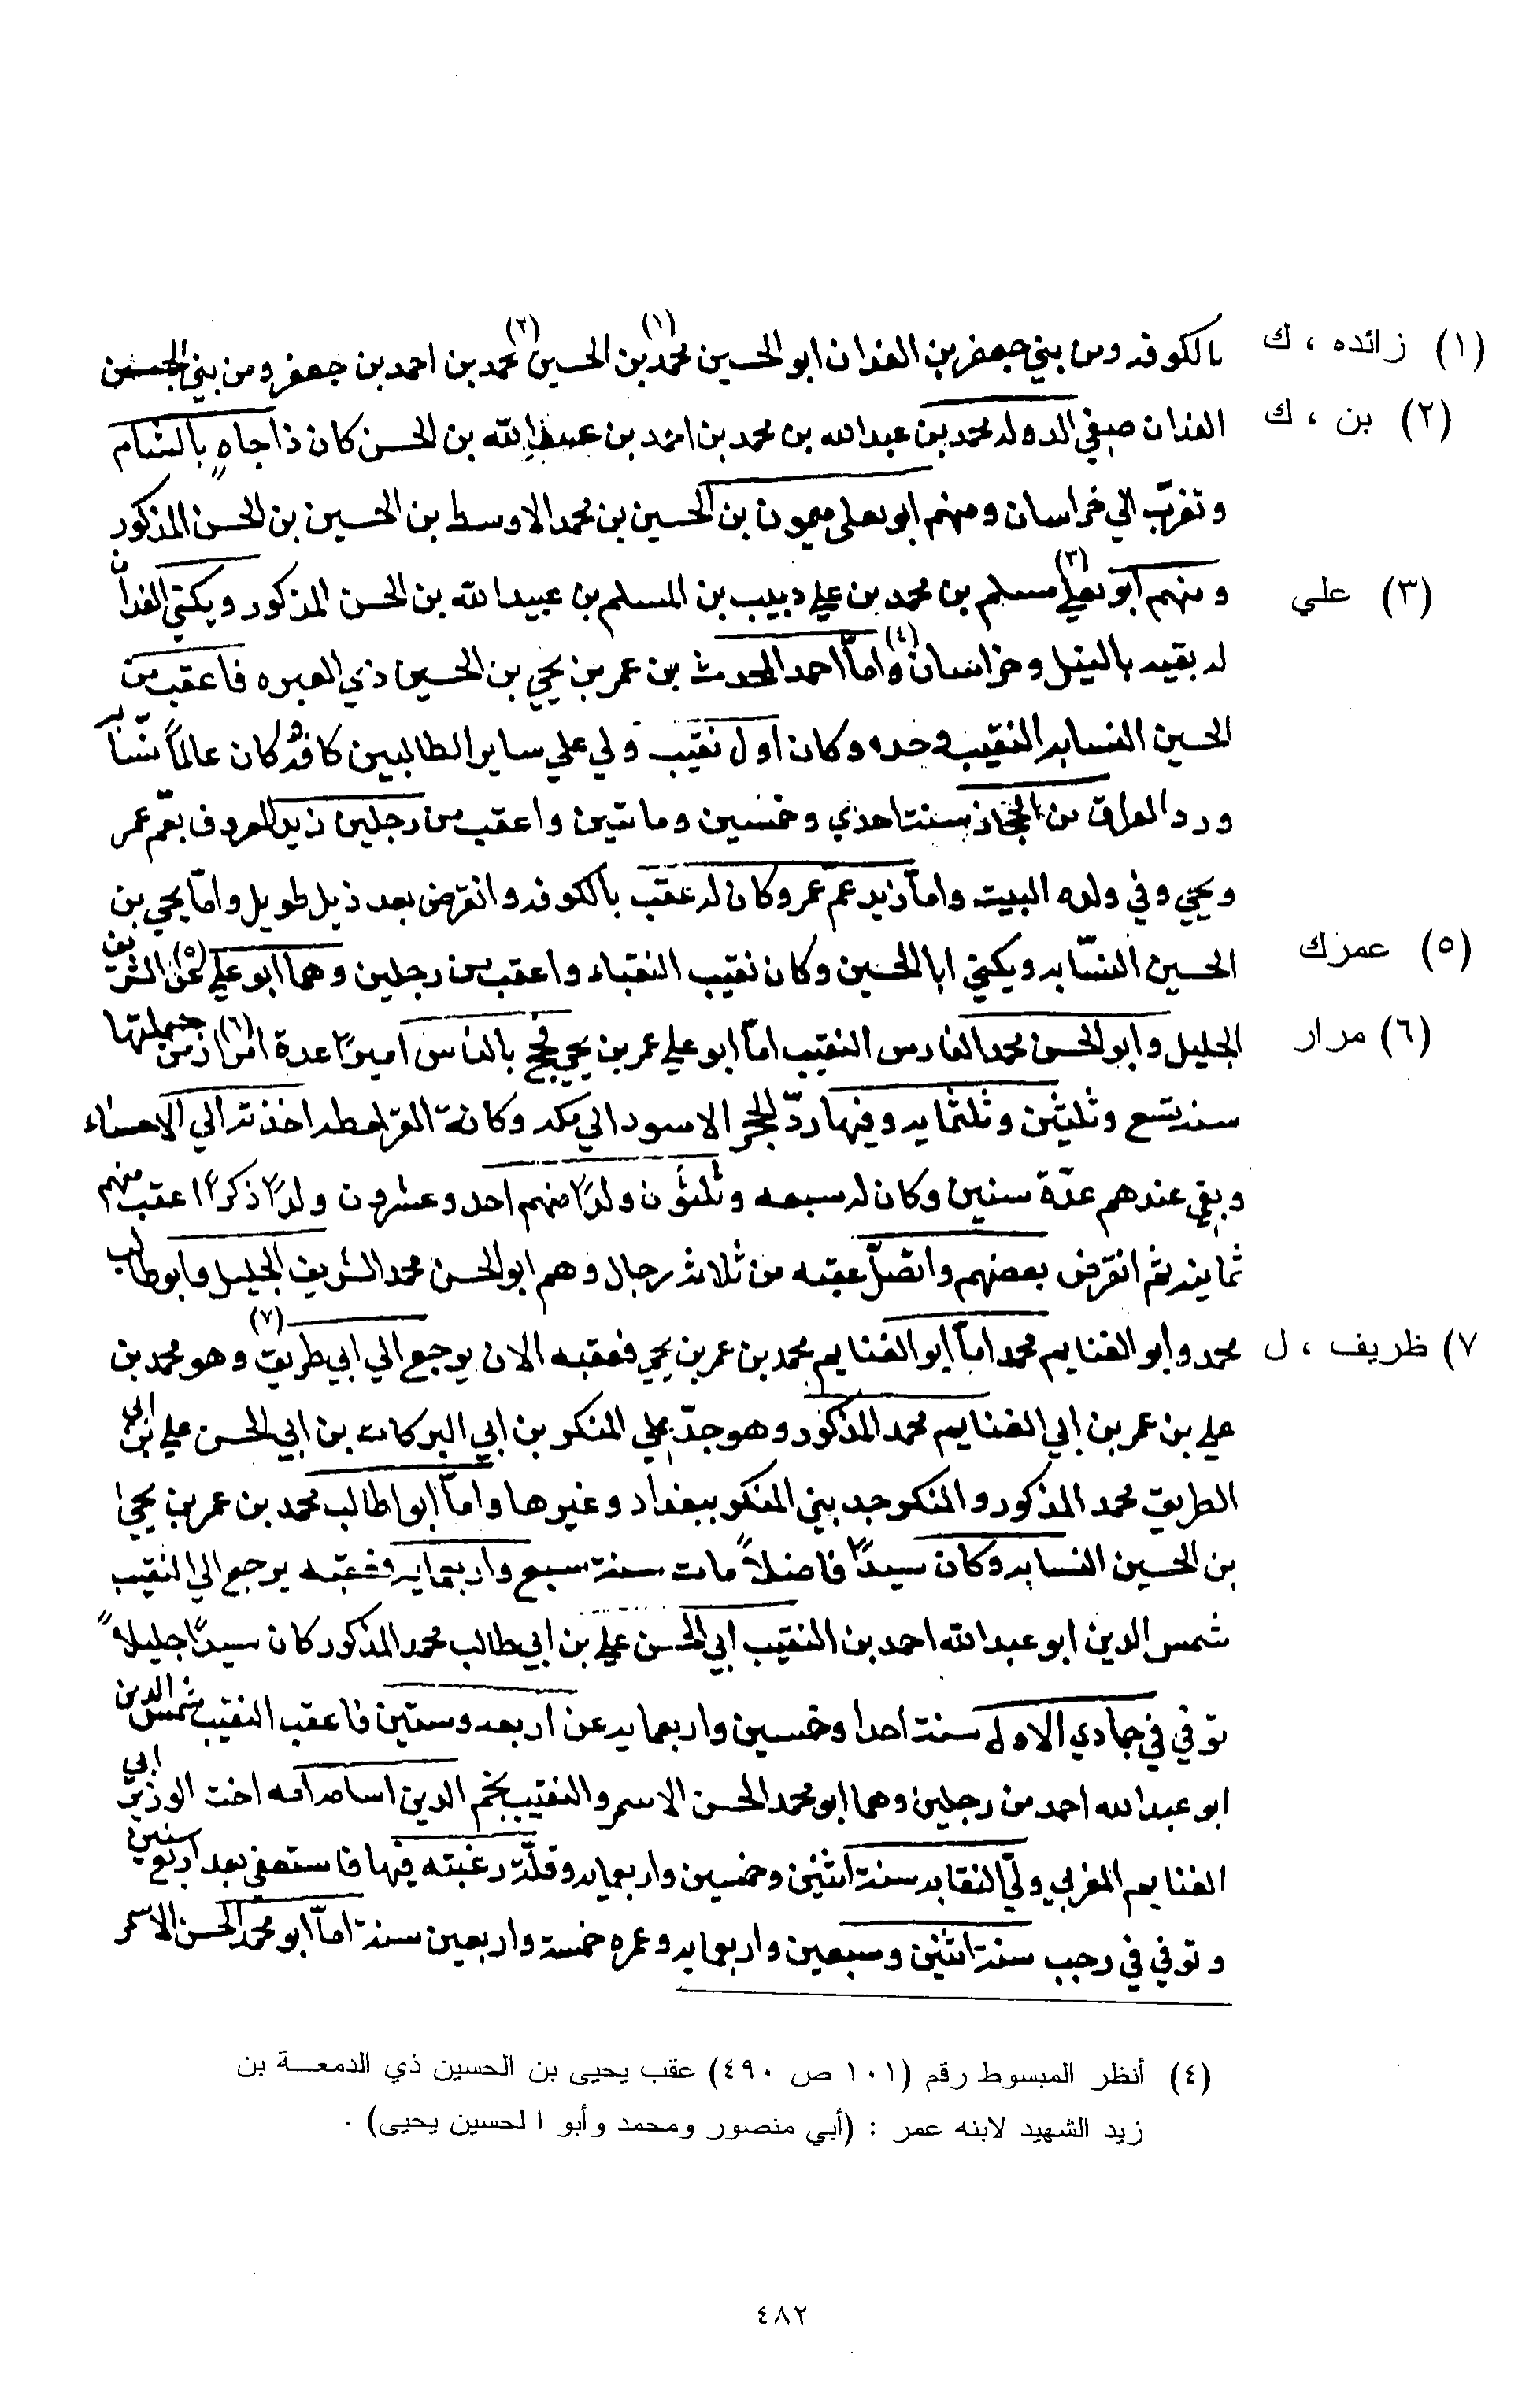 بالكوفه ومن بني جعفر بن الغدان ابو الحسين محمد(١) بن الحسين(٢) محمد بن احمد بن جعفر ومن بني الحسن
(١) زائده ، ك
الغدان صفي الدوله محمد بن عبدالله بن محمد بن احمد بن عبيدالله بن الحسن كان ذا جاهٍ بالشام
(٢) بن ، ك
وتغرّب الي خراسان ومنهم ابو يعلي ميمون بن الحسين بن محمد الاوسط بن الحسين بن الحسن المذكور
ومنهم ابو يعلي(٣) مسلم بن محمد بن علي دبيب بن المسلم بن عبيدالله بن الحسن المذكور ويكني الغدان
(٣) علي
له بقيه بالينل وخراسان(٤) وامّا احمد المحدث بن عمر بن يحيي بن الحسين ذي العبره فاعقب من
الحسين النسابه النقيب وحده وكان اول نقيب ولي علي ساير الطالبيين كافّه وكان عالماً نسّابه
ورد العراق من الحجاز سنت احدي وخمسين ومائتين واعقب من رجلين زيد المعروف بعم عمر
ويحيي وفي ولده البيت وامّا زيد عمّ عمر وكان له عقب بالكوفه وانقرض بعد ذيل طويل وامّا يحيي بن
الحسين النسّابه ويكني ابا الحسين وكان نقيب النقباء واعقب من رجلين وهما ابو علي عمر(٥) الشريف
(٥) عمزك
الجليل وابو الحسن محمد الفارس النقيب امّا ابو علي عمر بن يحيي فحج بالناس اميراً عدة امرار(٦) من جملتها
(٦) مرار
سنه تسع وثلثين وثلثمايه وفيها ردّ الحجر الاسود الي مكه وكانة القرامطه اخذته الي الاحساء
وبقي عندهم عدّة سنين وكان له سبعه وثلثون ولداً منهم احد وعشرون ولداً ذكراً اعقب منهم
ثمانيه ثم انقرض بعضهم واتصّل عقبه من ثلاثه رجال وهم ابو الحسن محمد الشريف الجليل وابو طالب
محمد وابو الغنايم محمد امّا ابو الغنايم محمد بن عمر بن يحيي فعقبه الان يرجع الي ابي طريق(٧) وهو محمد بن
٧) ظريف ، ل
علي بن عمر بن ابي الغنايم محمد المذكور وهو جدّ علي المنكو بن ابي البركات بن ابي الحسن علي بن ابي
الطريق محمد المذكور والمنكو جد بني المنكو ببغداد وغيرها وامّا ابوا طالب محمد بن عمر بن يحيي
بن الحسين النسابه وكان سيداً فاضلاً مات سنة سبع واربعمايه فعقبه يرجع الي النقيب
شمس الدين ابو عبدالله احمد بن النقيب ابي الحسن علي بن ابي طالب محمد المذكور كان سيداً جليلاً
توفي في جمادي الاولي سنت احدا وخمسين واربعمايه عن اربعه وستين فاعقب النقيب شمس الدين
ابو عبدالله احمد من رجلين وهما ابو محمد الحسن الاسمر والنقيب نجم الدين اسامه امه اخت الوزير ابي
الغنايم المغربي ولّي النقابه سنة اثنين وخمسين واربعمايه وقلّة رغبته فيها فاستعفي بعد اربع سنين
وتوفي في رجب سنة اثنين وسبعين واربعمايه وعمره خمسة واربعين سنة امّا ابو محمد الحسن الاسمر
(٤) أنظر المبسوط رقم (١٠١ ص ٤٩٠) عقب يحيى بن الحسين ذي الدمعـــة بن
زيد الشهيد لابنه عمر : (أبي منصور ومحمد وأبو ا لحسين يحيى) .
٤٨٢